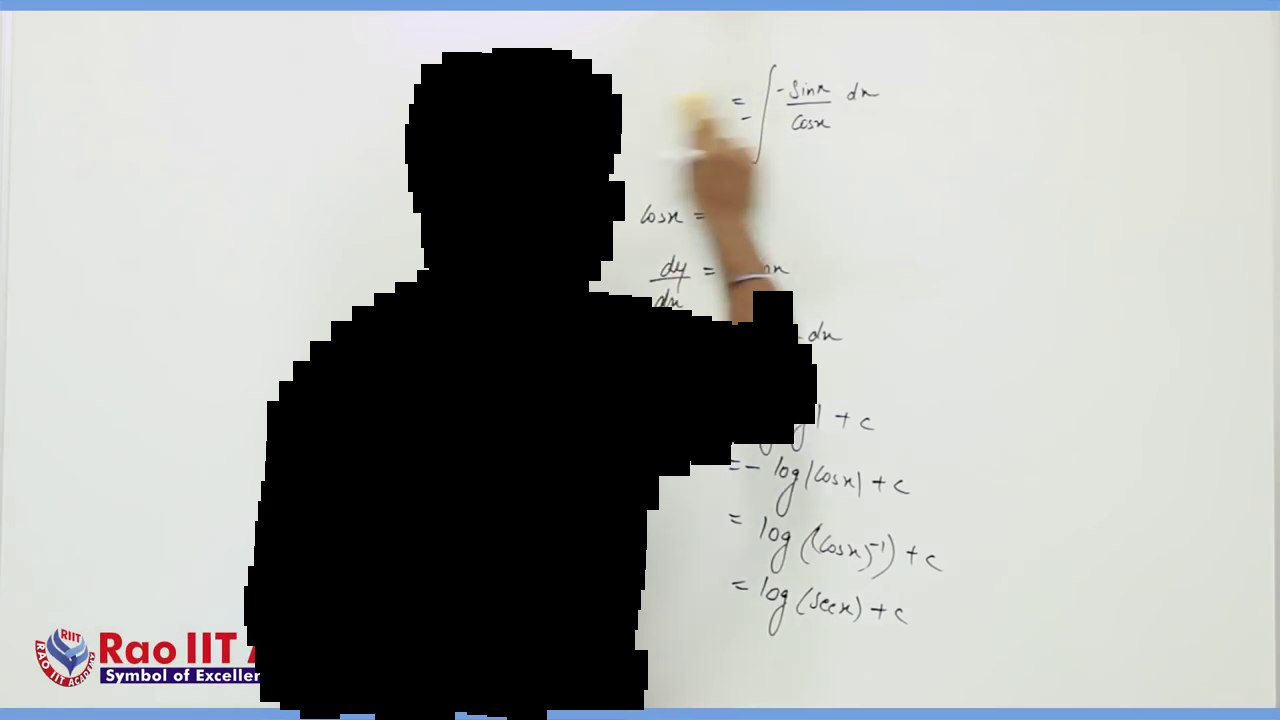 = - ∫ -sinx/cosx dx
cosx =
dy/dx = inx
dx
+ c
= - log|cosx| + c
= log((cosx)⁻¹) + c
= log(secx) + c
RIIT
RAO IIT ACADEMY
Rao IIT
Symbol of Excellen